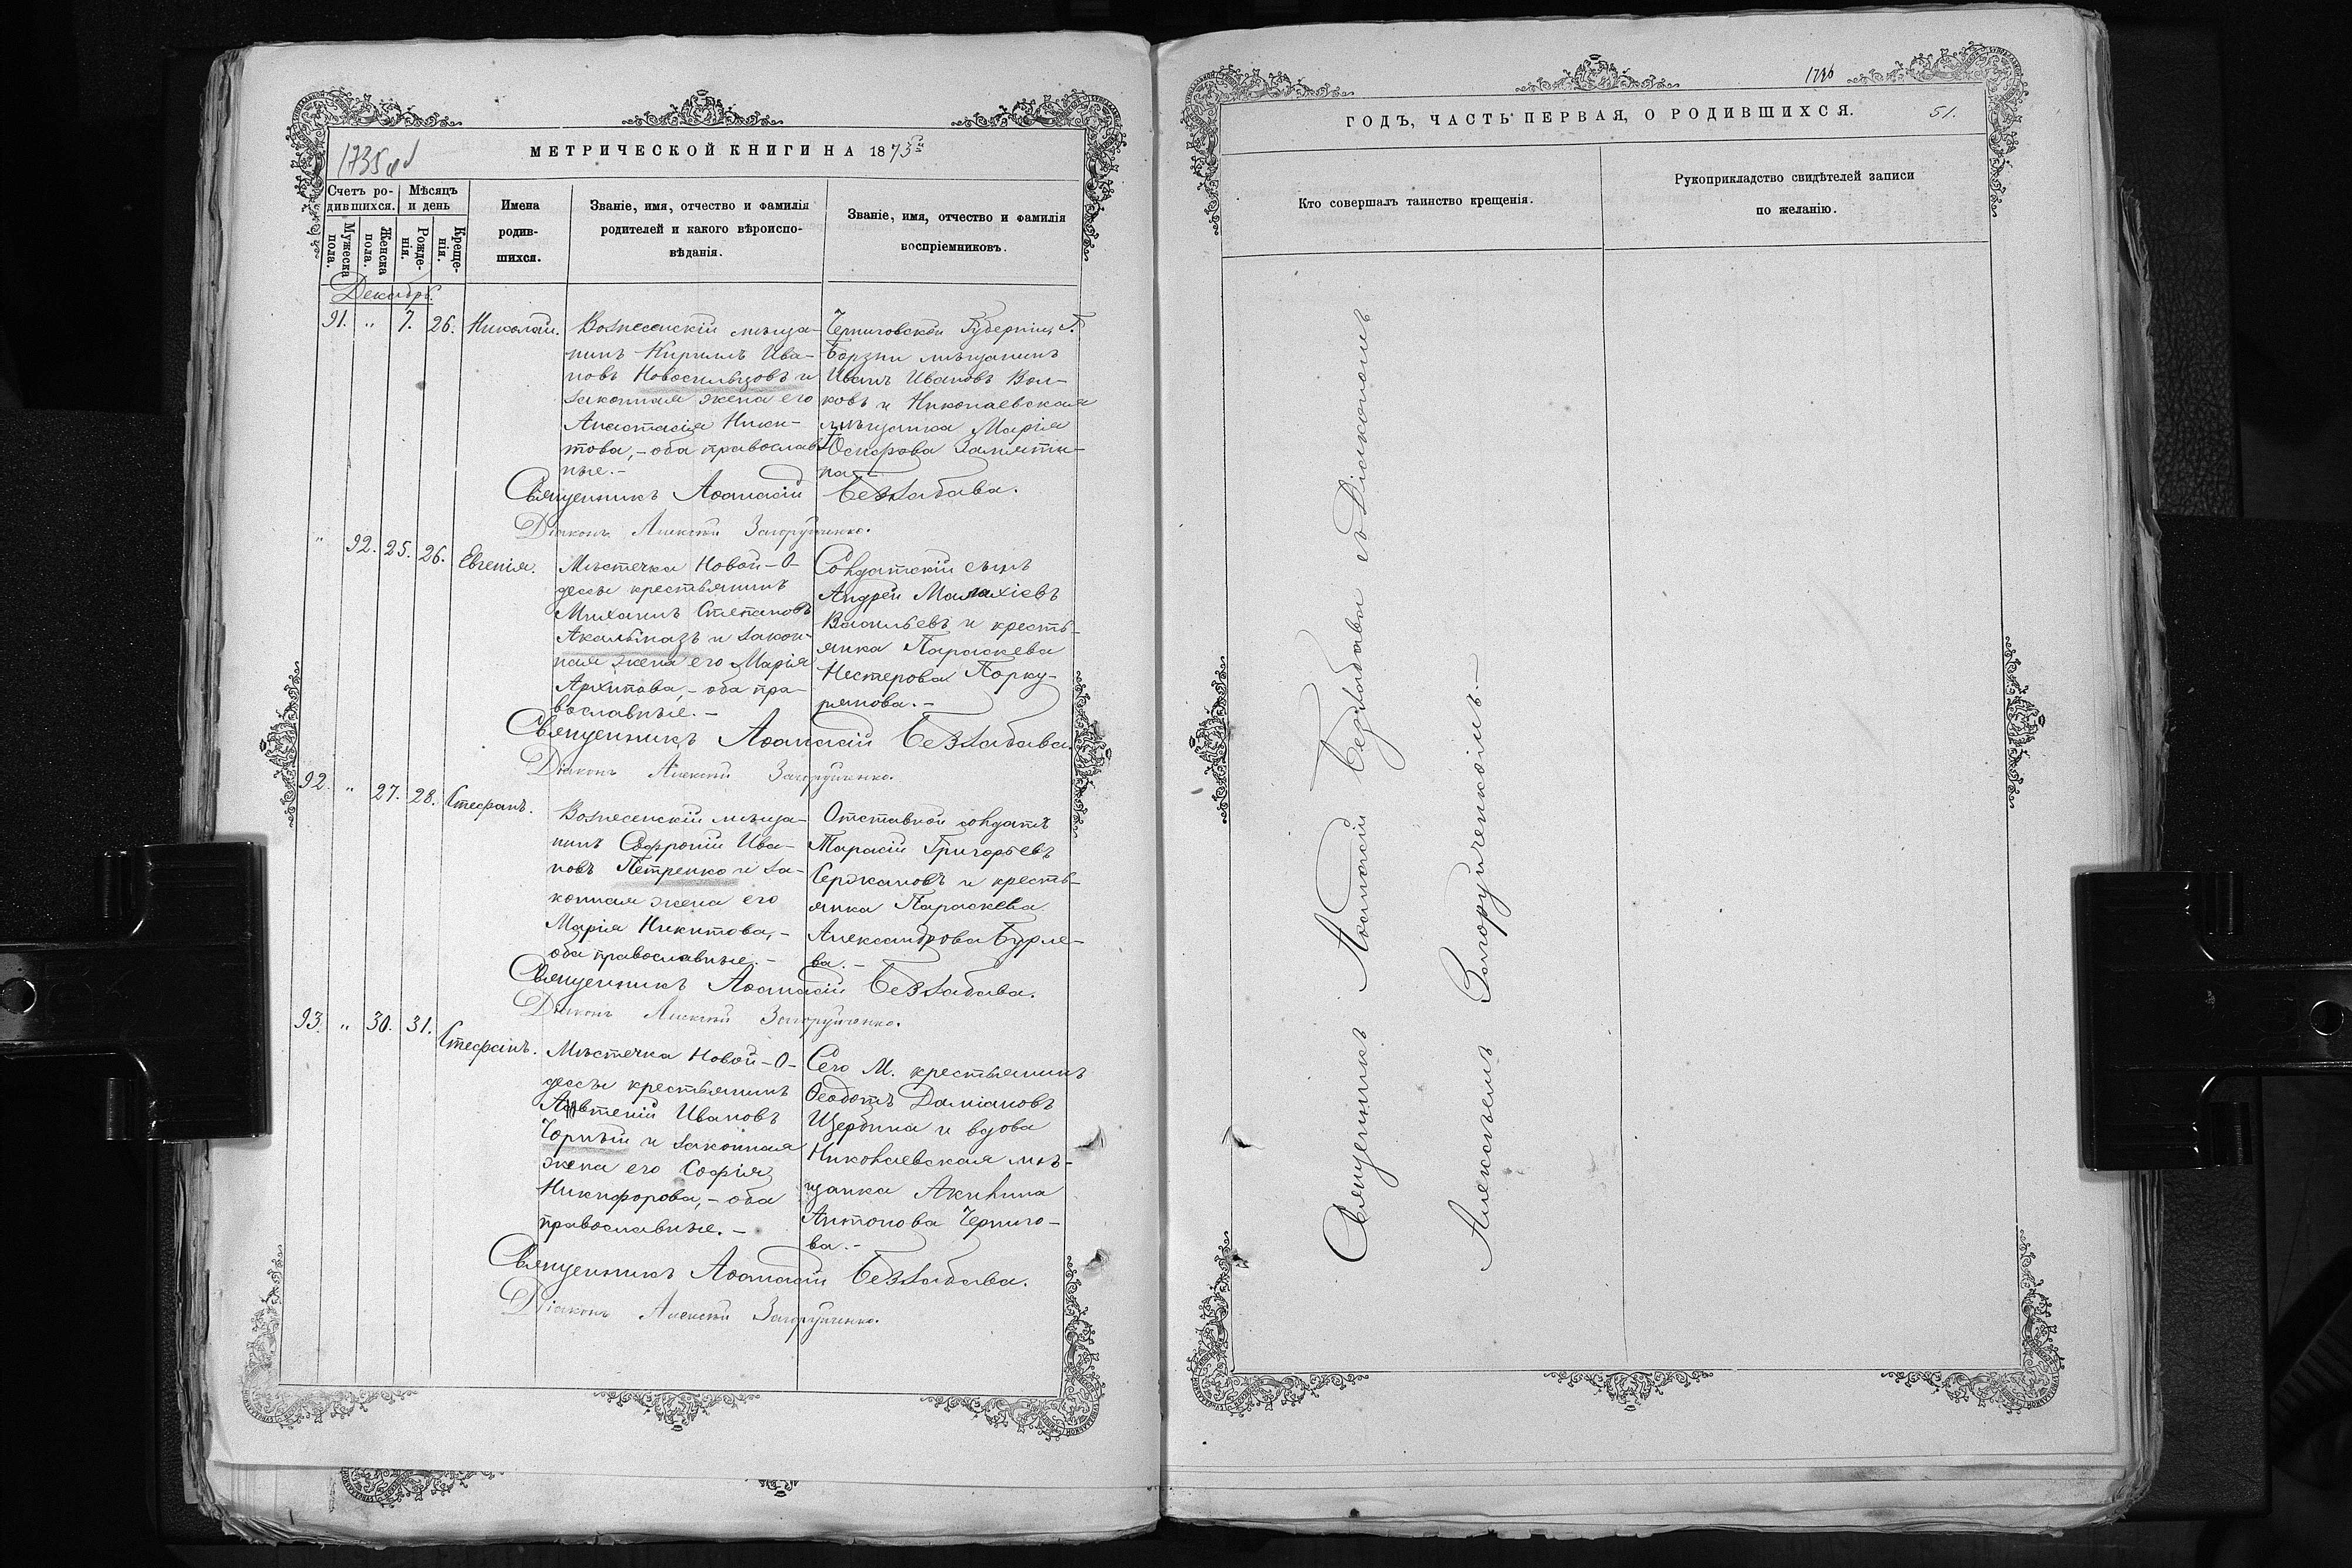 МЕТРИЧЕСКОЙ КНИГИ НА 1873й
Счетъ ро-
дившихся.
Мѣсяцъ
и день
Мужеска
пола.
Женска
пола.
Рожде-
нія.
Креще-
нія.
Имена
родив-
шихся.
Званіе, имя, отчество и фамилія
родителей и какого вѣроиспо-
вѣданія.
Званіе, имя, отчество и фамилія
воспріемниковъ.
Декабрь
91. " 7. 26. Николай.
Вознесенскій мѣща-
нинъ Кириллъ Ива-
новъ Новосильцовъ и
законная жена его
Анастасія Ники-
това, - оба православ-
ные. -
Черниговской Губерніи Г.
Борзни мѣщанинъ
Иванъ Ивановъ Вол-
ковъ и Николаевская
мѣщанка Марія
Осипова Замяти-
на. -
Священникъ Аѳанасій Беззабава.
Діаконъ Алексѣй Загоруйченко.
" 92. 25. 26. Евгенія.
Мѣстечка Новой-О-
дессы крестьянинъ
Михаилъ Степановъ
Акальмазъ и закон-
ная жена его Марія
Архипова, - оба пра-
вославные. -
Солдатскій сынъ
Андрей Малахіевъ
Васильевъ и кресть-
янка Параскева
Нестерова Порку-
рянова. -
Священникъ Аѳанасій Беззабава.
Діаконъ Алексѣй Загоруйченко.
92. " 27. 28. Стефанъ.
Вознесенскій мѣща-
нинъ Софроній Ива-
новъ Петренко и за-
конная жена его
Марія Никитова, -
оба православные. -
Отставной солдатъ
Тарасій Григорьевъ
Сержановъ и кресть-
янка Параскева
Александрова Бурле-
ва. -
Священникъ Аѳанасій Беззабава.
Діаконъ Алексѣй Загоруйченко.
93. " 30. 31. Стефанъ.
Мѣстечка Новой-О-
дессы крестьянинъ
Ивановъ
Чорный и законная
жена его Софія
Никифорова, - оба
православные. -
Сего М. крестьянинъ
Ѳеодотъ Даміановъ
Щербина и вдова
Николаевская мѣ-
щанка Акилина
Антонова Черниго-
ва. -
Священникъ Аѳанасій Беззабава.
Діаконъ Алексѣй Загоруйченко.
1736
ГОДЪ, ЧАСТЬ ПЕРВАЯ, О РОДИВШИХСЯ.
51.
Кто совершалъ таинство крещенія.
Рукоприкладство свидѣтелей записи
по желанію.
Священникъ Аѳанасій Беззабава съ Діакономъ
Алексѣемъ Загоруйченкомъ. -